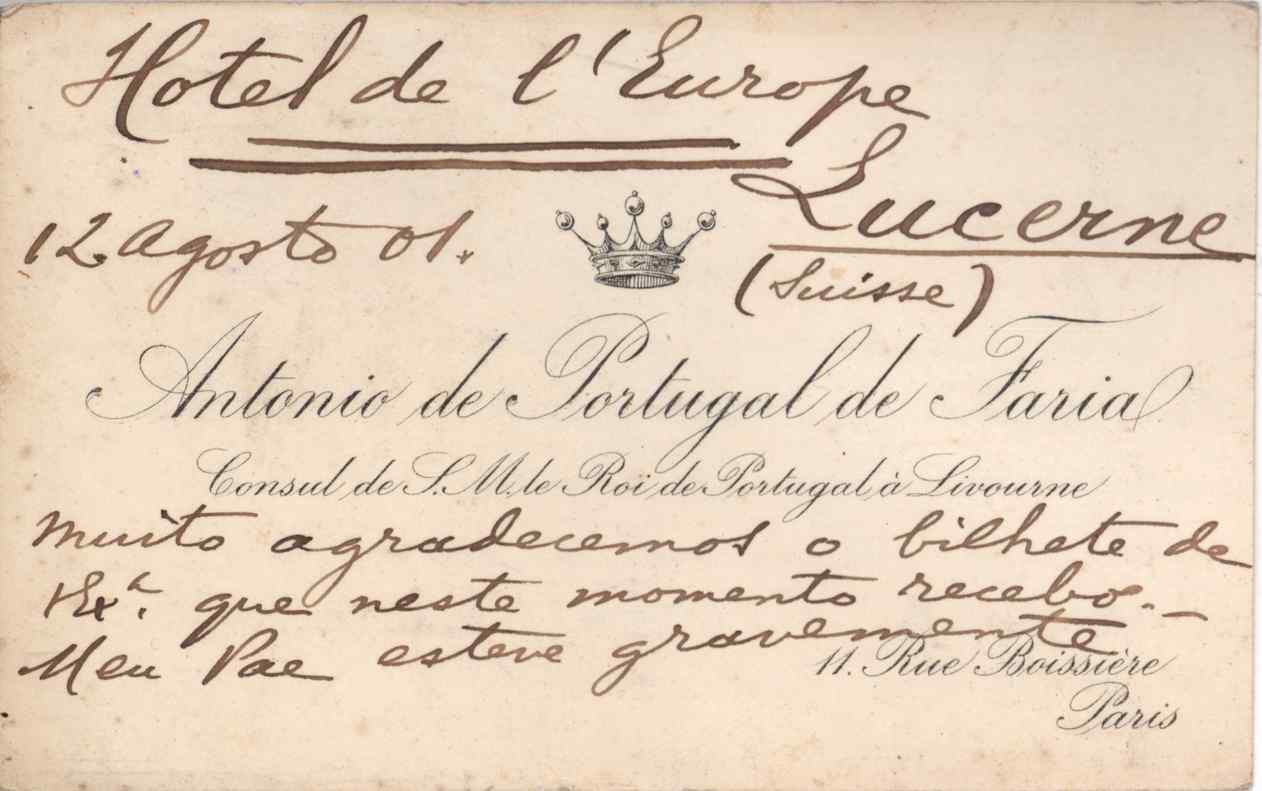 Hotel de l'Europe
Lucerne
(Suisse)
12 Agosto 01.
Antonio de Portugal de Faria
Consul de S. M. le Roi de Portugal à Livourne
Muito agradecemos o bilhete de
VExª. que neste momento recebo. —
Meu Pae esteve gravemente
11. Rue Boissière
Paris